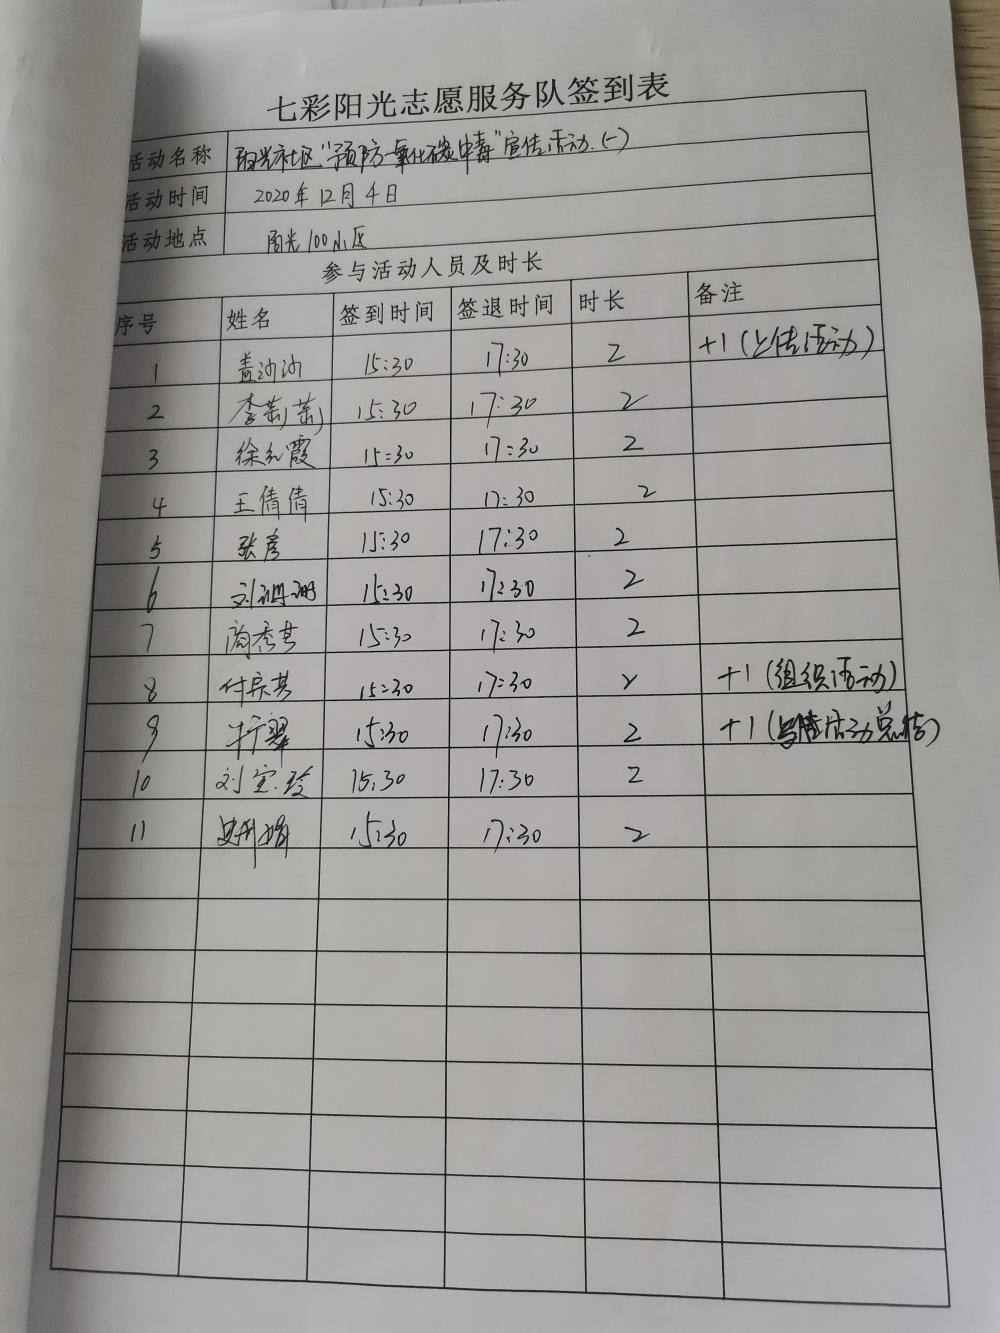 七彩阳光志愿服务队签到表
活动名称 阳光社区“预防一氧化碳中毒”宣传活动(一)
活动时间 2020年12月4日
活动地点 阳光100小区
参与活动人员及时长
序号 姓名 签到时间 签退时间 时长 备注
1 盖沙沙 15:30 17:30 2 +1(上传活动)
2 李茜茜 15:30 17:30 2
3 徐红霞 15:30 17:30 2
4 王倩倩 15:30 17:30 2
5 张彦 15:30 17:30 2
6 刘珊珊 15:30 17:30 2
7 商秀芸 15:30 17:30 2
8 15:30 17:30 2 +1(组织活动)
9 15:30 17:30 2 +1(活动总结)
10 刘宝玲 15:30 17:30 2
11 15:30 17:30 2